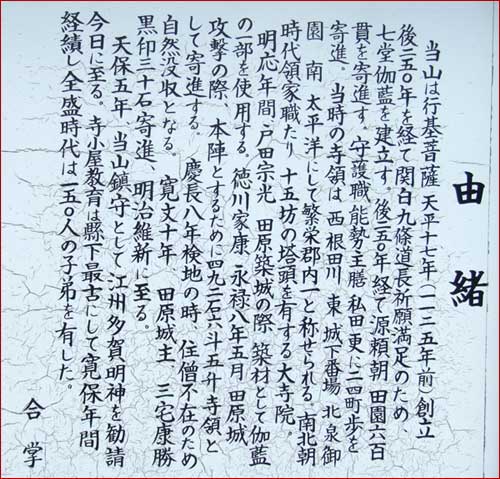 由緒
当山は行基菩薩 天平十七年(一二二五年前)創立
後二五〇年を経て関白九條道長祈願満足のため、
七堂伽藍を建立す。後二五〇年経て源頼朝 田園六百
貫を寄進す。守護職 能勢主膳 私田更に二四町歩を
寄進。当時の寺領は 西 根田川 東 城下番場 北 泉御
園 南 太平洋にして繁栄郡内一と称せられる。南北朝
時代領家職たり 十五坊の塔頭を有する大寺院。
明応年間、戸田宗光 田原築城の際 築材として伽藍
の一部を使用する。徳川家康、永禄八年五月 田原城
攻撃の際、本陣とするために四九二石六斗五升寺領と
して寄進する。 慶長八年検地の時、住僧不在のため
自然没収となる。 寛文十年、田原城主 三宅康勝
黒印三十石寄進、明治維新に至る。
天保五年、当山鎮守として 江州多賀明神を勧請
今日に至る。寺小屋教育は縣下最古にして寛保年間
経績し全盛時代は一五〇人の子弟を有した。
合掌